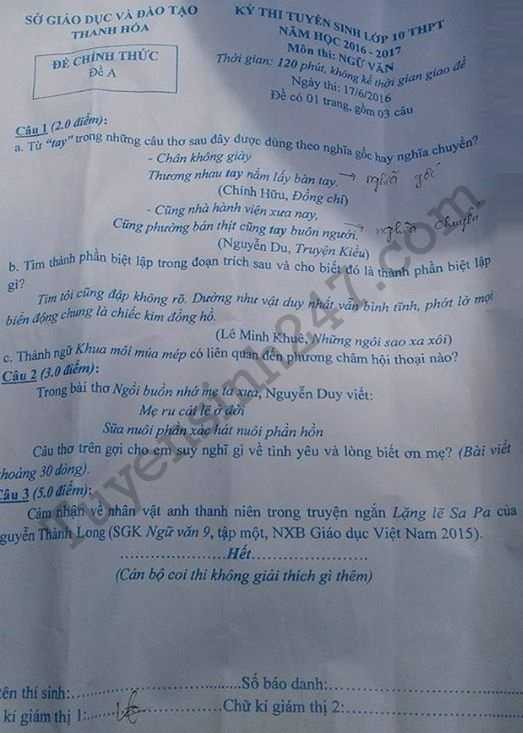 SỞ GIÁO DỤC VÀ ĐÀO TẠO
THANH HÓA
ĐỀ CHÍNH THỨC
Đề A
KỲ THI TUYỂN SINH LỚP 10 THPT
NĂM HỌC 2016 - 2017
Môn thi: NGỮ VĂN
Thời gian: 120 phút, không kể thời gian giao đề
Ngày thi: 17/6/2016
Đề có 01 trang, gồm 03 câu
Câu 1 (2.0 điểm):
a. Từ "tay" trong những câu thơ sau đây được dùng theo nghĩa gốc hay nghĩa chuyển?
- Chân không giày
Thương nhau tay nắm lấy bàn tay. → nghĩa gốc
(Chính Hữu, Đồng chí)
- Cũng nhà hành viện xưa nay,
Cũng phường bán thịt cũng tay buôn người. → nghĩa chuyển
(Nguyễn Du, Truyện Kiều)
b. Tìm thành phần biệt lập trong đoạn trích sau và cho biết đó là thành phần biệt lập
gì?
Tim tôi cũng đập không rõ. Dường như vật duy nhất vẫn bình tĩnh, phớt lờ mọi
biến động chung là chiếc kim đồng hồ.
(Lê Minh Khuê, Những ngôi sao xa xôi)
c. Thành ngữ Khua môi múa mép có liên quan đến phương châm hội thoại nào?
Câu 2 (3.0 điểm):
Trong bài thơ Ngồi buồn nhớ mẹ ta xưa, Nguyễn Duy viết:
Mẹ ru cái lẽ ở đời
Sữa nuôi phần xác hát nuôi phần hồn
Câu thơ trên gợi cho em suy nghĩ gì về tình yêu và lòng biết ơn mẹ? (Bài viết
khoảng 30 dòng).
Câu 3 (5.0 điểm):
Cảm nhận về nhân vật anh thanh niên trong truyện ngắn Lặng lẽ Sa Pa của
guyễn Thành Long (SGK Ngữ văn 9, tập một, NXB Giáo dục Việt Nam 2015).
........................Hết........................
(Cán bộ coi thi không giải thích gì thêm)
tên thí sinh:........................Số báo danh:........................
kí giám thị 1:........................Chữ kí giám thị 2:........................
Tuyensinh247.com